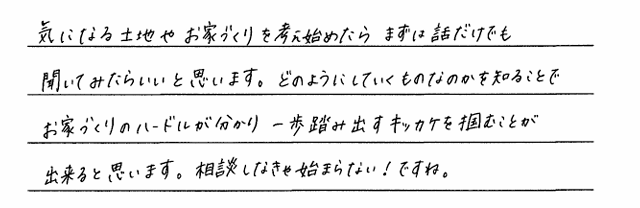 気になる土地や お家づくりを考え始めたら まずは話だけでも
聞いてみたらいいと思います。どのようにしていくものなのかを知ることで
お家づくりのハードルが分かり 一歩踏み出すキッカケを掴むことが
出来ると思います。相談しなきゃ始まらない！ですね。